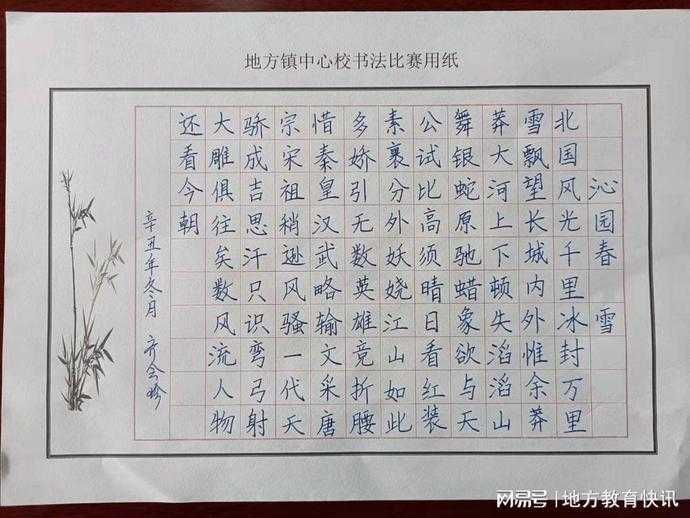 地方镇中心校书法比赛用纸
沁园春 雪
北国风光千里冰封万里
雪飘望长城内外惟余莽
莽大河上下顿失滔滔山
舞银蛇原驰蜡象欲与天
公试比高须晴日看红装
素裹分外妖娆江山如此
多娇引无数英雄竞折腰
惜秦皇汉武略输文采唐
宗宋祖稍逊风骚一代天
骄成吉思汗只识弯弓射
大雕俱往矣数风流人物
还看今朝
辛丑年冬月 齐会
网易号 | 地方教育快讯